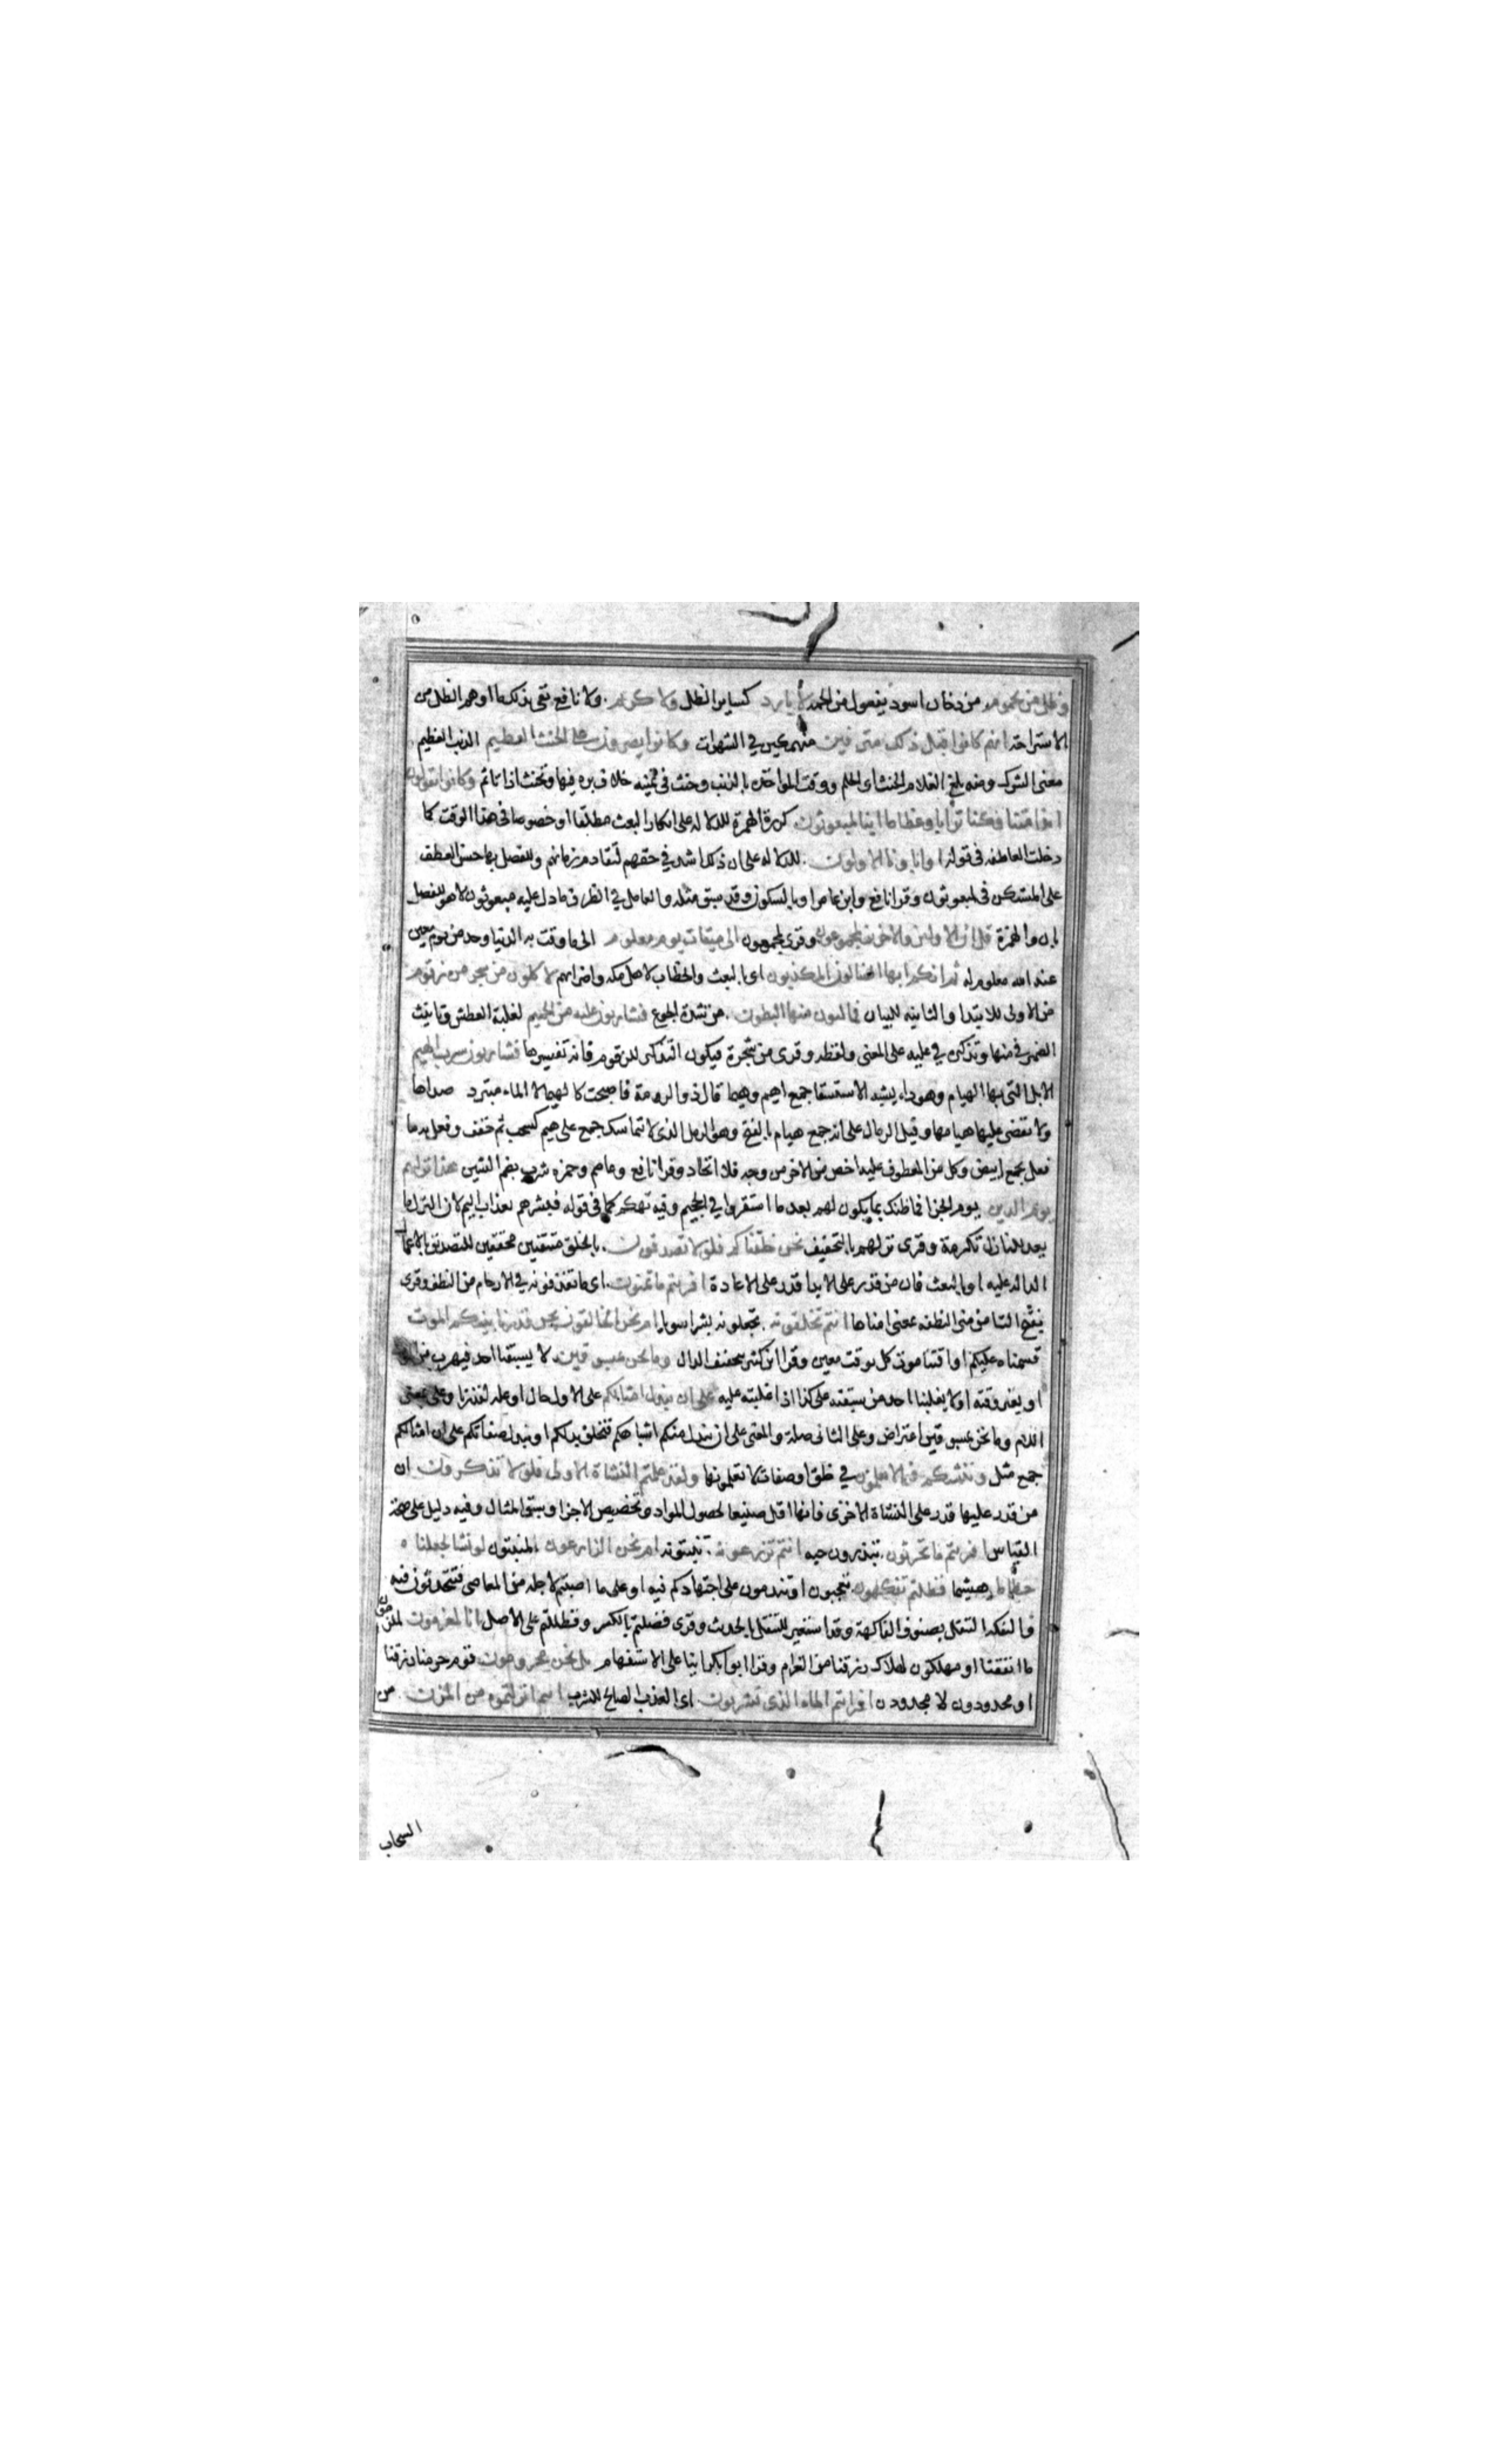 وظل من يحموم من دخان اسود يفعول من الحمة لا بارد كساير الظل ولا كريم ولا نافع نفى بذلك ما اوهم الظل من
الاستراحة انهم كانوا قبل ذلك مترفين منهمكين في الشهوات وكانوا يصرون على الحنث العظيم الذنب العظيم
معنى الشرك ومنه بلغ الغلام الحنث اى الحلم ووقت المواخذه بالذنب وحنث فى يمينه خلاف بره فيها وتحنث اذا تاثم وكانوا يقولون
ايذا متنا وكنا ترابا وعظاما اينا لمبعوثون كررة الهمزة للدلاله على انكار البعث مطلقا او خصوصا فى هذا الوقت كما
دخلت العاطفه فى قوله او اباونا الاولون للدلاله على ان ذلك اشد في حقهم لتقادم زمانهم وللفصل بها حسن العطف
على المستكن فى لمبعوثون وقرا نافع وابن عامر او بالسكون وقد سبق مثله والعامل في الظرف ما دل عليه مبعوثون لا هو للفصل
بان والهمزة قل ان الاولين والاخرين لمجموعون وقرى لمجمعون الى ميقات يوم معلوم الى ما وقت به الدنيا وحد من يوم معين
عند الله معلوم له ثم انكم ايها الضالون المكذبون اى بالبعث والخطاب لاهل مكه واضرابهم لاكلون من شجر من زقوم
من الاولى للابتدا والثانيه للبيان فمالئون منها البطون من شدة الجوع فشاربون عليه من الحميم لغلبة العطش وتانيث
الضمير فى منها وتذكيره في عليه على المعنى ولفظه وقرى من شجرة فيكون التذكير للزقوم فانه تفسيرها فشاربون شرب الهيم
الابل التى بها الهيام وهو داء يشبه الاستسقا جمع اهيم وهيما قال ذو الرمة فاصبحت كالهيما لا الماء مبرد صداها
ولا يقضى عليها هيامها وقيل الرمال على انه جمع هيام بالفتح وهو الرمل الذى لا يتماسك جمع على هيم كسحب ثم خفف وفعل به ما
فعل بجمع ابيض وكل من المعطوف عليه اخص من الاخر من وجه فلا اتحاد وقرا نافع وعاصم وحمزه شرب بضم الشين هذا نزلهم
يوم الدين يوم الجزا فما ظنك بما يكون لهم بعد ما استقروا في الجحيم وفيه تهكم كما فى قوله فبشرهم بعذاب اليم لان النزل ما
يعد للنازل تكرمة وقرى نزلهم بالتخفيف نحن خلقناكم فلولا تصدقون بالخلق متيقنين محققين للتصديق بالاعمال
الداله عليه او بالبعث فان من قدر على الابدا قدر على الاعادة افريتم ما تمنون اى ما تقذفونه في الارحام من النطف وقرى
بفتح التا من منى النطفه بمعنى امناها اانتم تخلقونه تجعلونه بشرا سويا ام نحن الخالقون نحن قدرنا بينكم الموت
قسمناه عليكم واقتنا موت كل بوقت معين وقرا ابن كثير بتخفيف الدال وما نحن بمسبوقين لا يسبقنا احد فيهرب من
او يغير وقته او لا يغلبنا احد من سبقته على كذا اذا غلبته عليه على ان نبدل امثالكم على الاول حال او علة لقدرنا وعلى بمعنى
اللام وما نحن بمسبوقين اعتراض وعلى الثانى صلة والمعنى على ان نبدل منكم اشباهكم فنخلق بدلكم او نبدل صفاتكم على ان امثالكم
جمع مثل وننشئكم فيما لا تعلمون في خلق او صفات لا تعلمونها ولقد علمتم النشاة الاولى فلولا تذكرون ان
من قدر عليها قدر على النشاة الاخرى فانها اقل صنيعا لحصول المواد وتخصيص الاجزا وسبق المثال وفيه دليل على صحة
القياس افريتم ما تحرثون تبذرون حبه اانتم تزرعونه تنبتونه ام نحن الزارعون المنبتون لو نشا لجعلناه
حطاما هشيما فظلتم تفكهون تعجبون او تندمون على اجتهادكم فيه او على ما اصبتم لاجله من المعاصى فتتحدثون فيه
والتفكه التنقل بصنوف الفاكهة وقد استعير للتنقل بالحديث وقرى فظلتم بالكسر وفظللتم على الاصل انا لمغرمون لملزمون
ما انفقنا او مهلكون لهلاك رزقنا من الغرام وقرا ابو بكر اينا على الاستفهام بل نحن محرومون قوم حرمنا رزقنا
او محدودون لا مجدودون افرايتم الماء الذى تشربون اى العذب الصالح للشرب اانتم انزلتموه من المزن من
السحاب